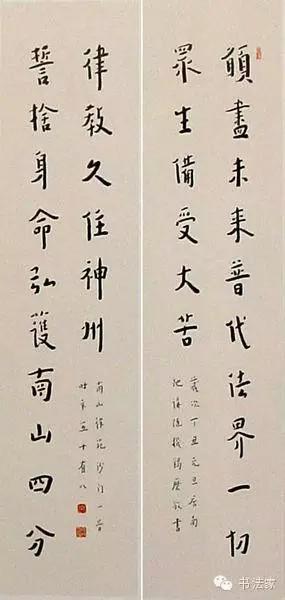 願盡未来普代法界一切
眾生備受大苦
歲次丁丑元旦居南
陀講隨機羯磨敬書
誓捨身命弘護南山四分
律教久住神州
南山律苑沙門一音
時年五十有八
书法家